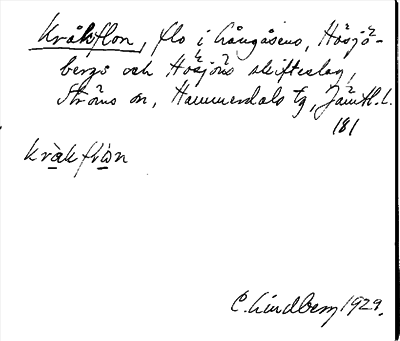 Kråkflon, flo i Långåsens, Hösjö-
bergs och Hösjöns skifteslag,
Ströms sn, Hammerdals tg, Jämtl. l.
181
kràkflòn
C. Lindberg 1929.